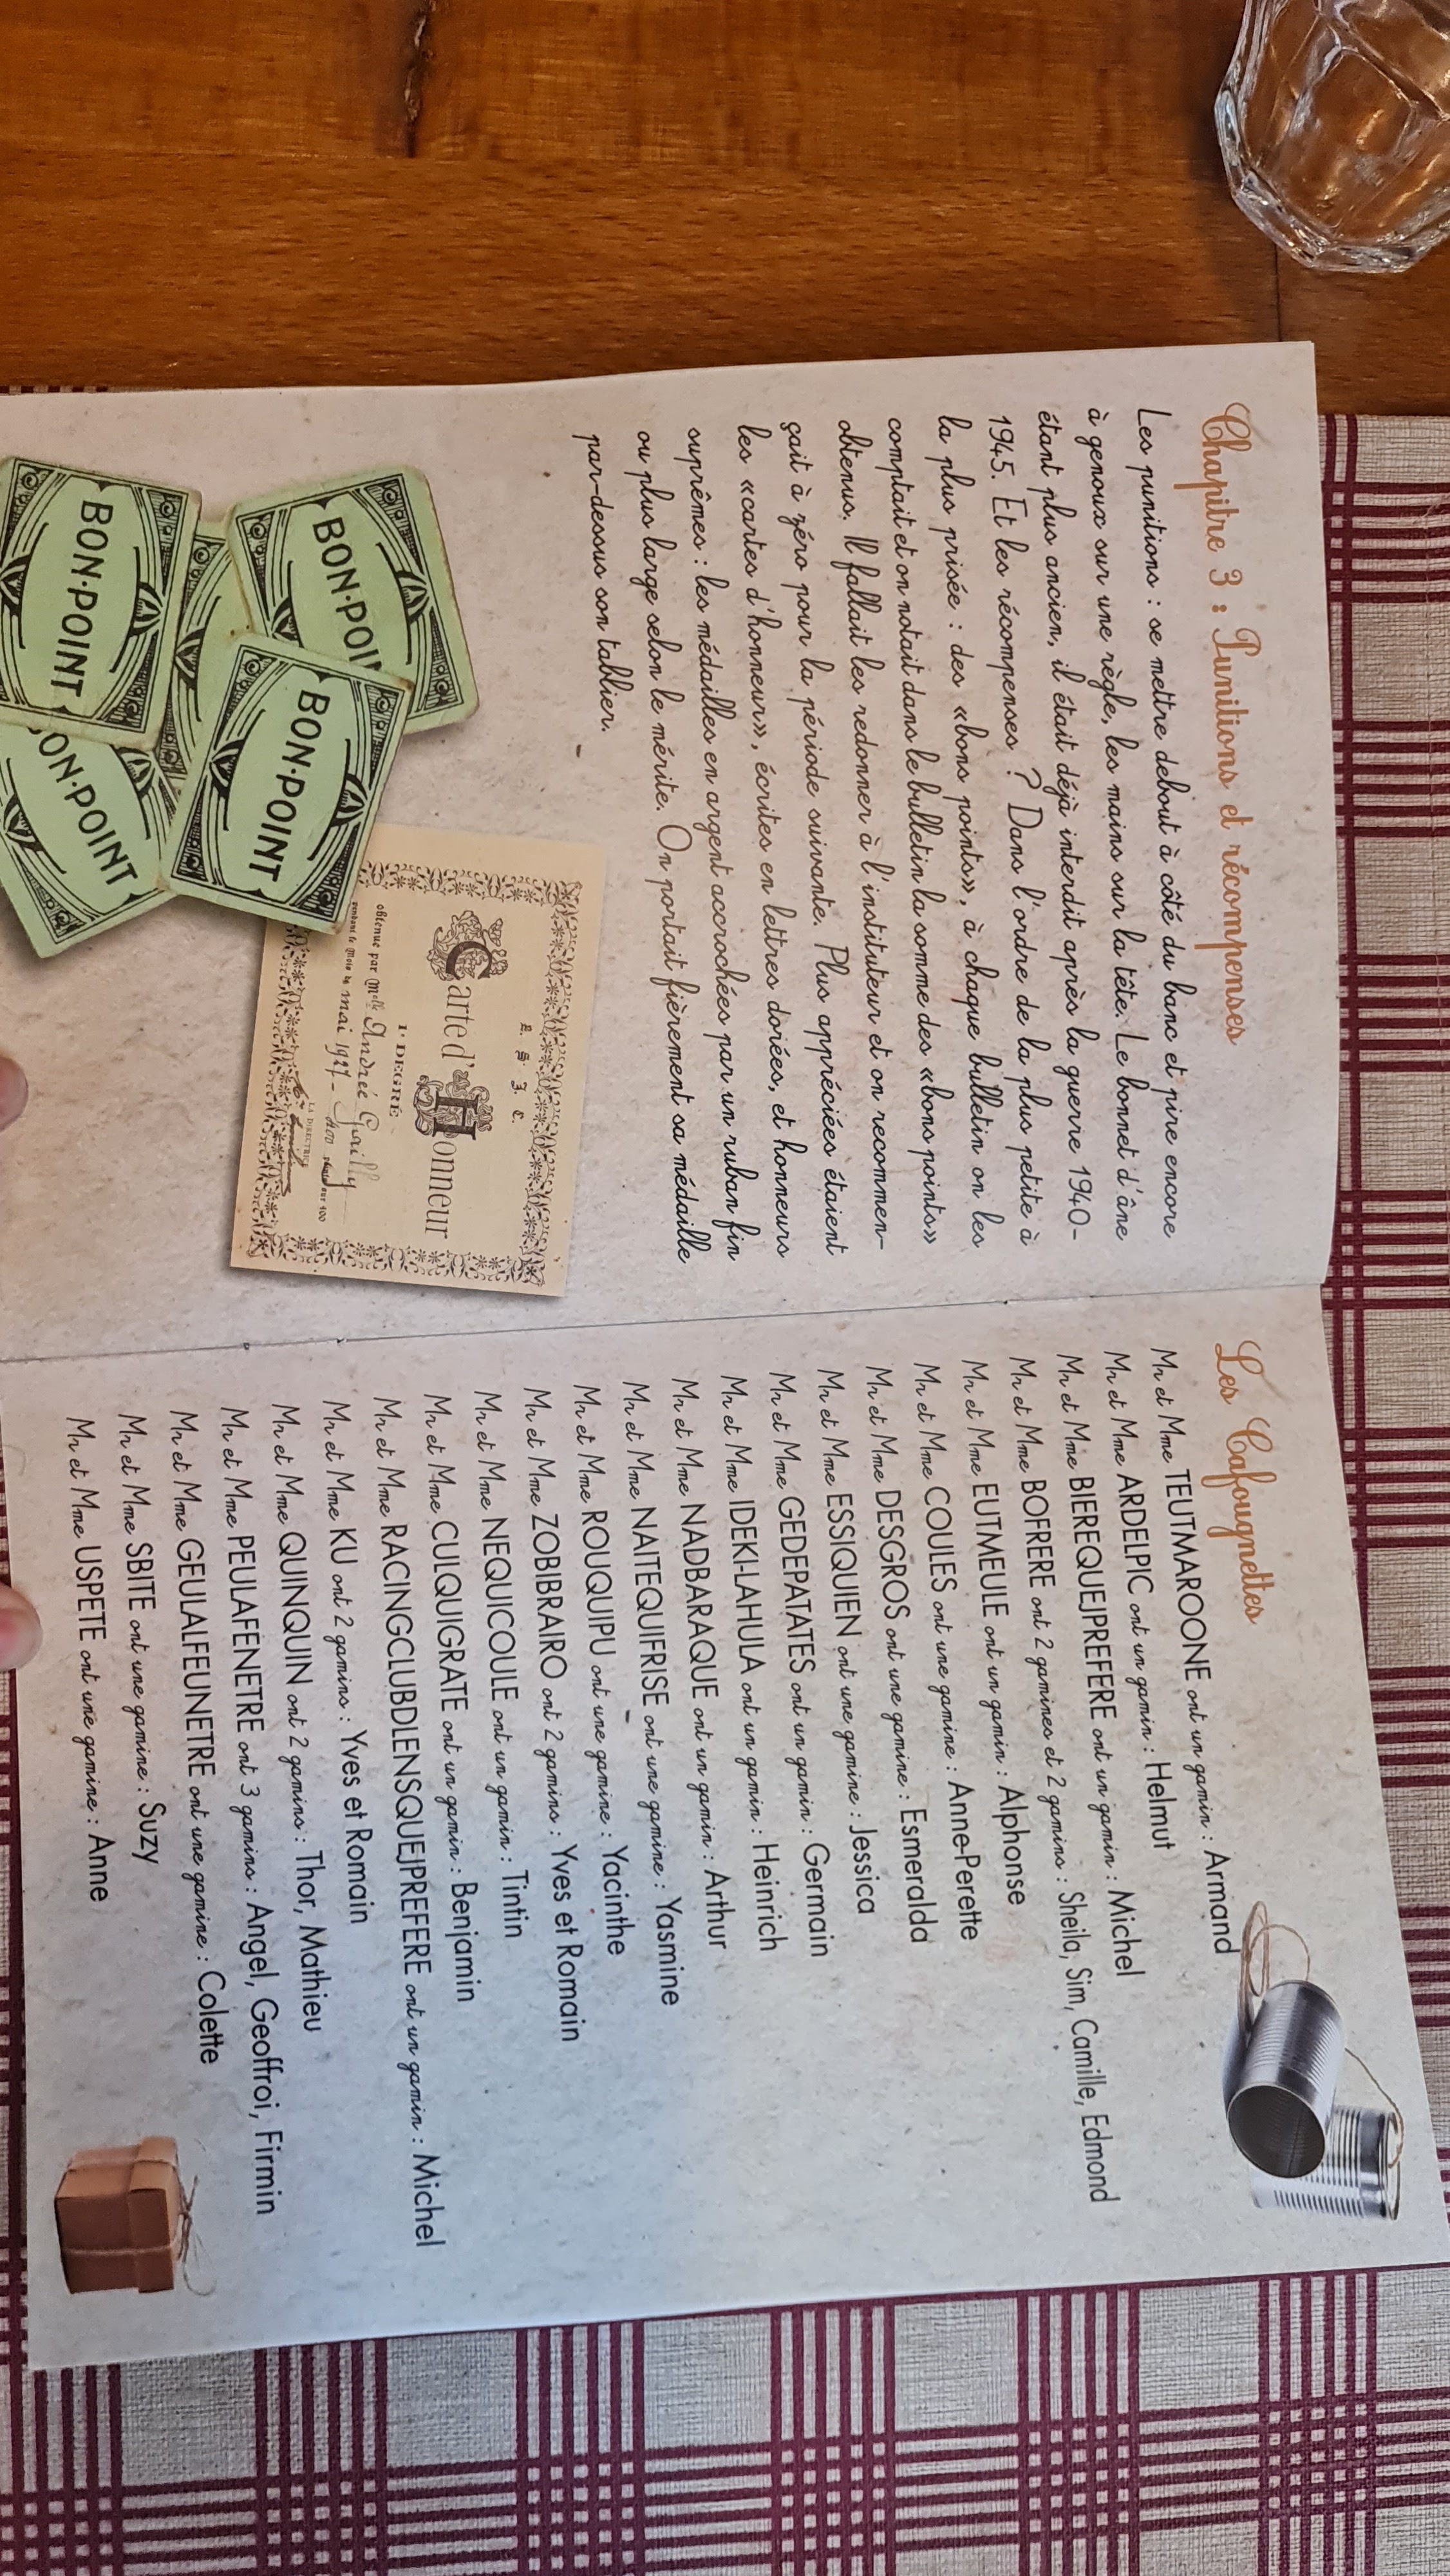 Chapitre 3 : Punitions et récompenses
Les punitions : se mettre debout à côté du banc et pire encore
à genoux sur une règle, les mains sur la tête. Le bonnet d'âne
étant plus ancien, il était déjà interdit après la guerre 1940-
1945. Et les récompenses ? Dans l'ordre de la plus petite à
la plus prisée : des «bons points», à chaque bulletin on les
comptait et on notait dans le bulletin la somme des «bons points»
obtenus. Il fallait les redonner à l'instituteur et on recommen-
çait à zéro pour la période suivante. Plus appréciées étaient
les «cartes d'honneur», écrites en lettres dorées, et honneurs
suprêmes : les médailles en argent accrochées par un ruban fin
ou plus large selon le mérite. On portait fièrement sa médaille
par-dessus son tablier.
BON-POI
BON-POINT
BON-POINT
ON-POINT
Carte d'Honneur
1r DEGRÉ
obtenue par Melle Andrée
pendant le Mois de mai 19
LA DIRECTRICE
sur 100
Les Cafougnettes
Mr et Mme TEUTMAROONE ont un gamin : Armand
Mr et Mme ARDELPIC ont un gamin : Helmut
Mr et Mme BIEREQUEJPREFERE ont un gamin : Michel
Mr et Mme BOFRERE ont 2 gamines et 2 gamins : Sheila, Sim, Camille, Edmond
Mr et Mme EUTMEULE ont un gamin : Alphonse
Mr et Mme COULES ont une gamine : Anne-Perette
Mr et Mme DESGROS ont une gamine : Esmeralda
Mr et Mme ESSIQUIEN ont une gamine : Jessica
Mr et Mme GEDEPATATES ont un gamin : Germain
Mr et Mme IDEKI-LAHULA ont un gamin : Heinrich
Mr et Mme NADBARAQUE ont un gamin : Arthur
Mr et Mme NAITEQUIFRISE ont une gamine : Yasmine
Mr et Mme ROUQUIPU ont une gamine : Yacinthe
Mr et Mme ZOBIBRAIRO ont 2 gamins : Yves et Romain
Mr et Mme NEQUICOULE ont un gamin : Tintin
Mr et Mme CULQUIGRATE ont un gamin : Benjamin
Mr et Mme RACINGCLUBDLENSQUEJPREFERE ont un gamin : Michel
Mr et Mme KU ont 2 gamins : Yves et Romain
Mr et Mme QUINQUIN ont 2 gamins : Thor, Mathieu
Mr et Mme PEULAFENETRE ont 3 gamins : Angel, Geoffroi, Firmin
Mr et Mme GEULALFEUNETRE ont une gamine : Colette
Mr et Mme SBITE ont une gamine : Suzy
Mr et Mme USPETE ont une gamine : Anne